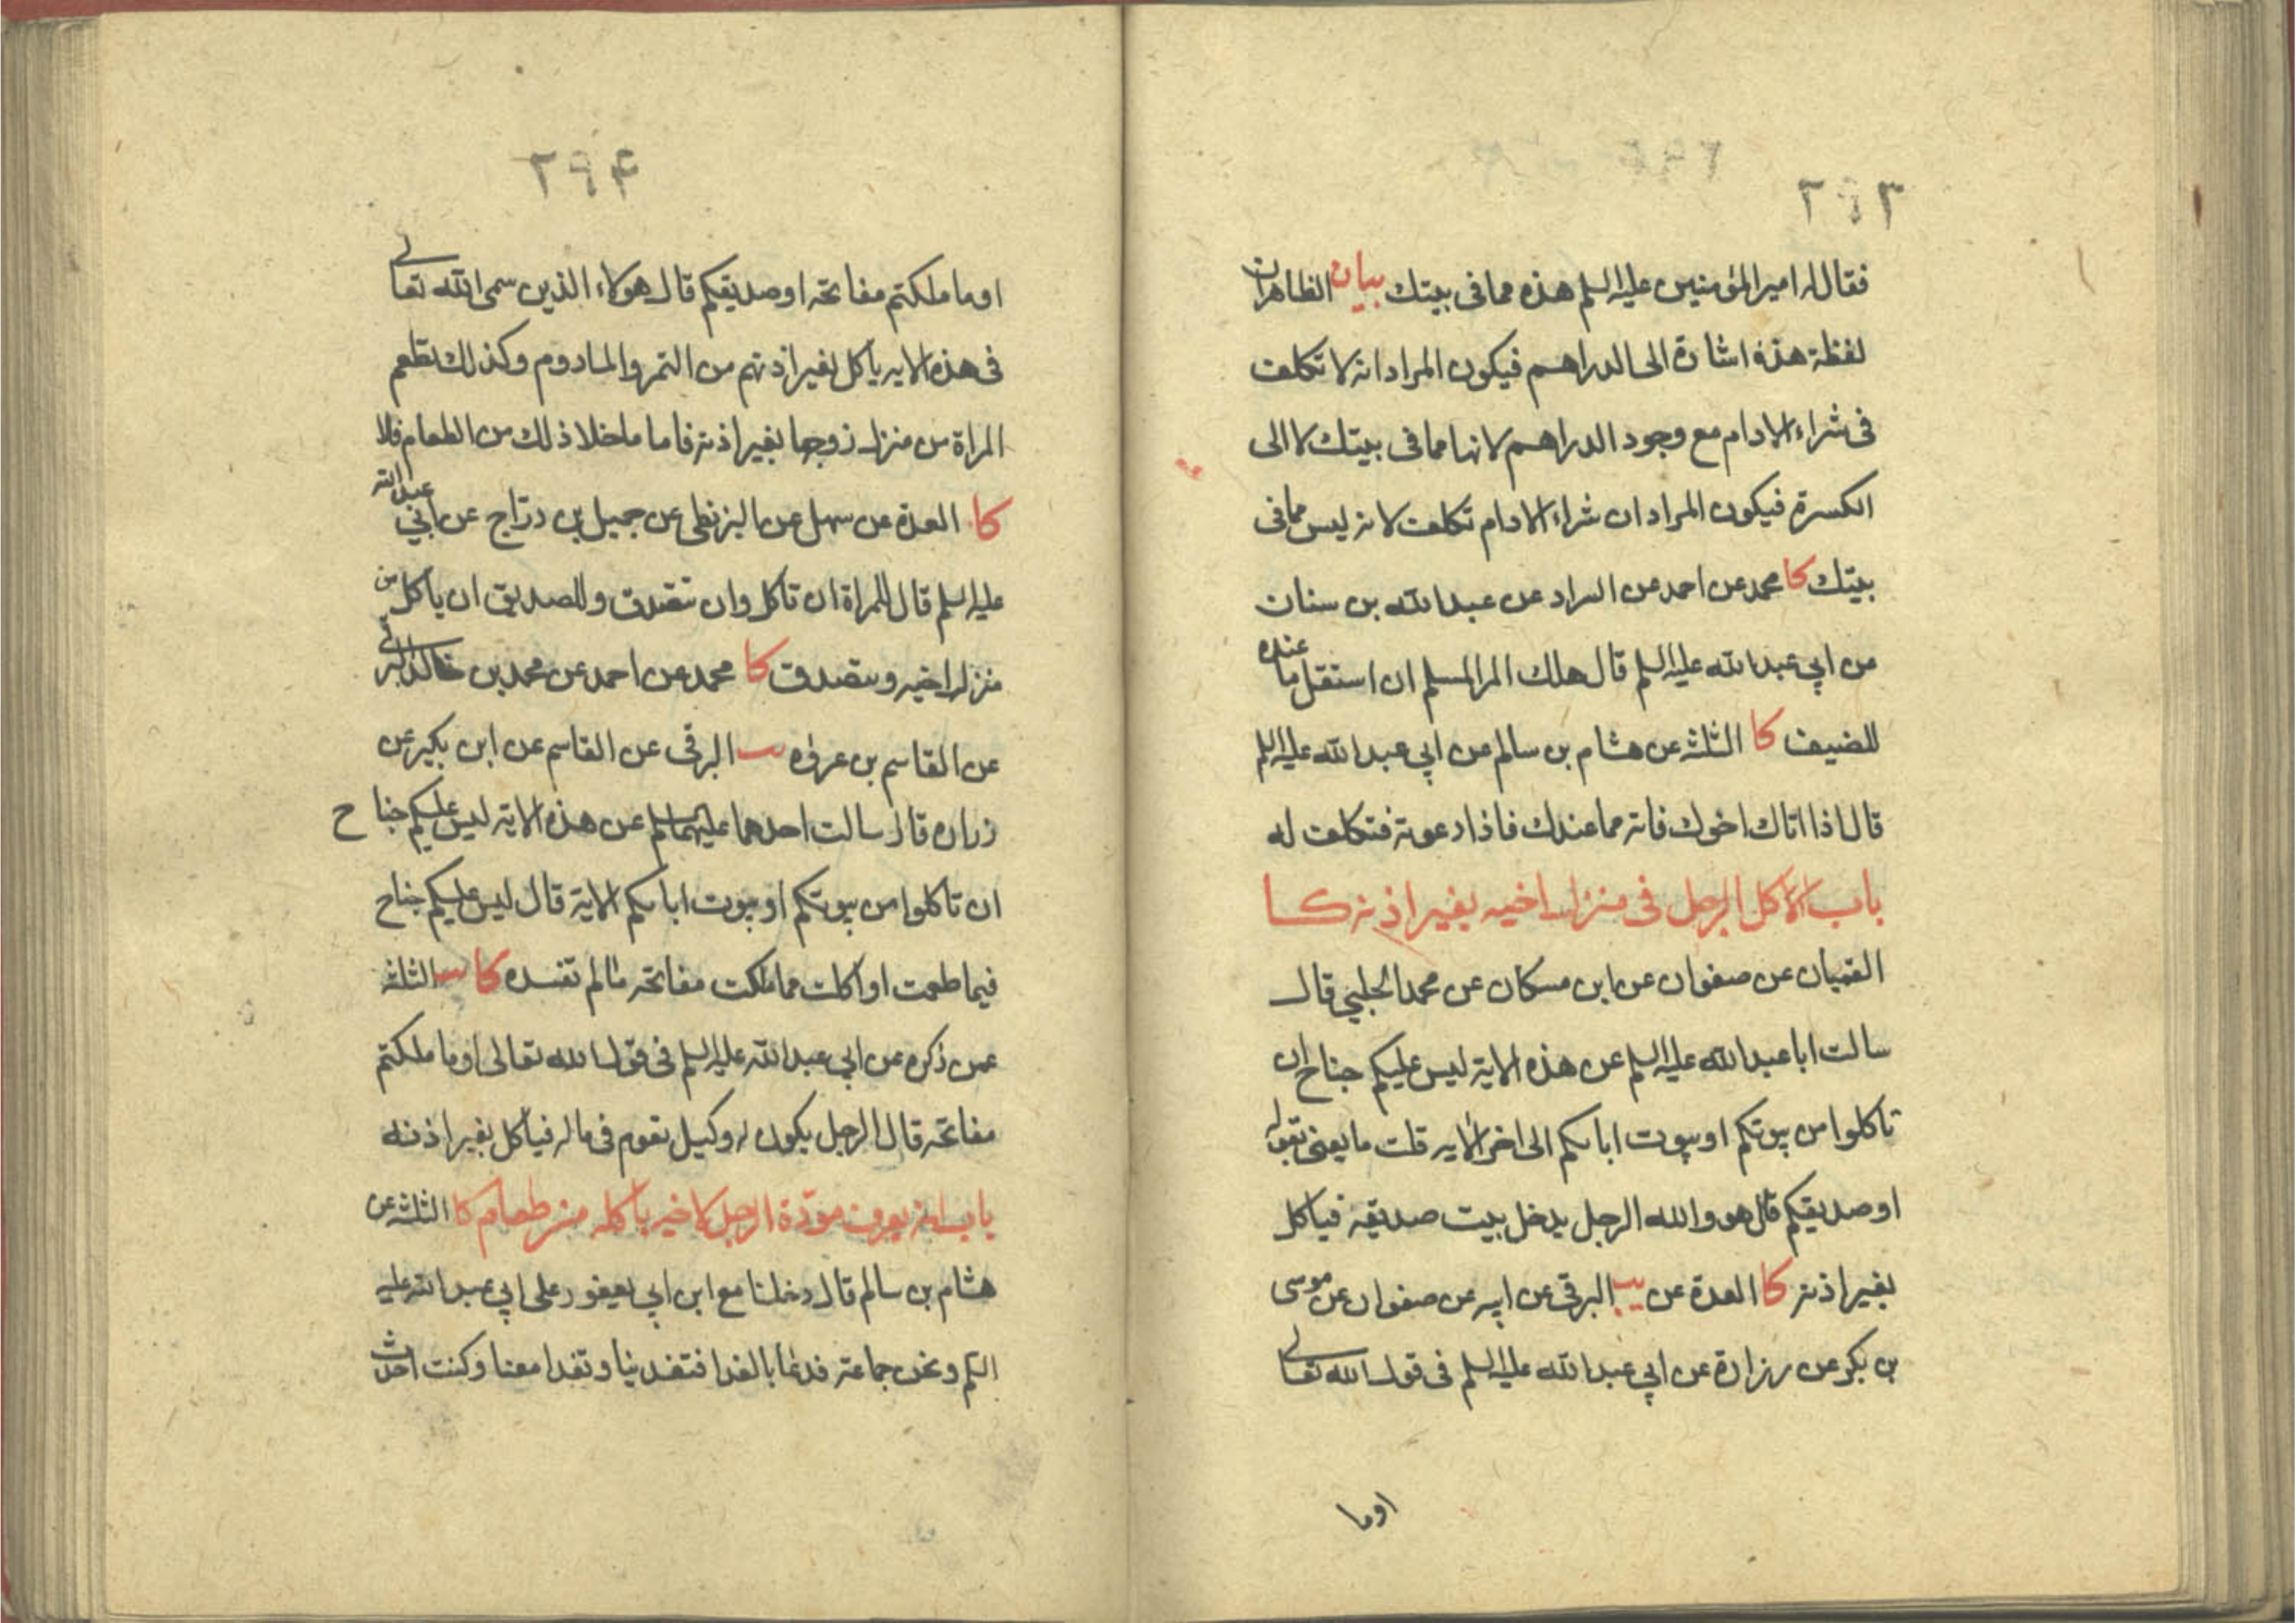 ٢٩٣
فقال له امير المؤمنين عليه السلم هذه مما فى بيتك بيان الظاهر ان
لفظة هذه اشارة الى الدراهم فيكون المراد انه لا تكلف
فى شراء الادام مع وجود الدراهم لانها مما فى بيتك لا الى
الكسرة فيكون المراد ان شراء الادام تكلف لانه ليس مما فى
بيتك كا محمد عن احمد عن السراد عن عبدالله بن سنان
عن ابي عبدالله عليه السلم قال هلك المرا المسلم ان استقل ما عنده
للضيف كا الثلثه عن هشام بن سالم عن ابي عبدالله عليه السلم
قال اذا اتاك اخوك فاته مما عندك فاذا دعوته فتكلف له
باب الاكل الرجل فى منزل اخيه بغير اذنه كا
القميان عن صفوان عن ابن مسكان عن محمد الحلبي قال
سالت ابا عبدالله عليه السلم عن هذه الاية ليس عليكم جناح ان
تاكلوا من بيوتكم او بيوت اباىكم الى اخر الايه قلت ما يعنى بقوله
او صديقكم قال هو والله الرجل يدخل بيت صديقه فياكل
بغير اذنه كا العدة عن يب البرقى عن ابيه عن صفوان عن موسى
بن بكر عن زرارة عن ابي عبدالله عليه السلم فى قول الله تعالى
اوما
٢٩۴
او ما ملكتم مفاتحه او صديقكم قال هولاء الذين سمى الله تعالى
فى هذه الايه ياكل بغير اذنهم من التمر والمادوم وكذلك تطعم
المراة من منزل زوجها بغير اذنه فاما ما خلا ذلك من الطعام فلا
كا العدة عن سهل عن البزنطى عن جميل بن دراج عن ابي عبدالله
عليه السلم قال للمراة ان تاكل وان تتصدق وللصديق ان ياكل من
منزل اخيه ويتصدق كا محمد عن احمد عن محمد بن خالد البرقى
عن القاسم بن عروه يب البرقى عن القاسم عن ابن بكير عن
زراره قال سالت احدهما عليهما السلم عن هذه الاية ليس عليكم جناح
ان تاكلوا من بيوتكم او بيوت اباىكم الاية قال ليس عليكم جناح
فيما طعمت او اكلت مما ملكت مفاتحه مالم تفسده كا يب الثلثه
عمن ذكره عن ابي عبدالله عليه السلم فى قول الله تعالى او ما ملكتم
مفاتحه قال الرجل يكون له وكيل يقوم فى ماله فياكل بغير اذنه
باب انه يعرف مودة الرجل لاخيه باكله من طعام كا الثلثه عن
هشام بن سالم قال دخلنا مع ابن ابي يعفور على ابي عبدالله عليه
السلم ونحن جماعة فدعا بالغدا فتغدينا وتغدا معنا وكنت احدث